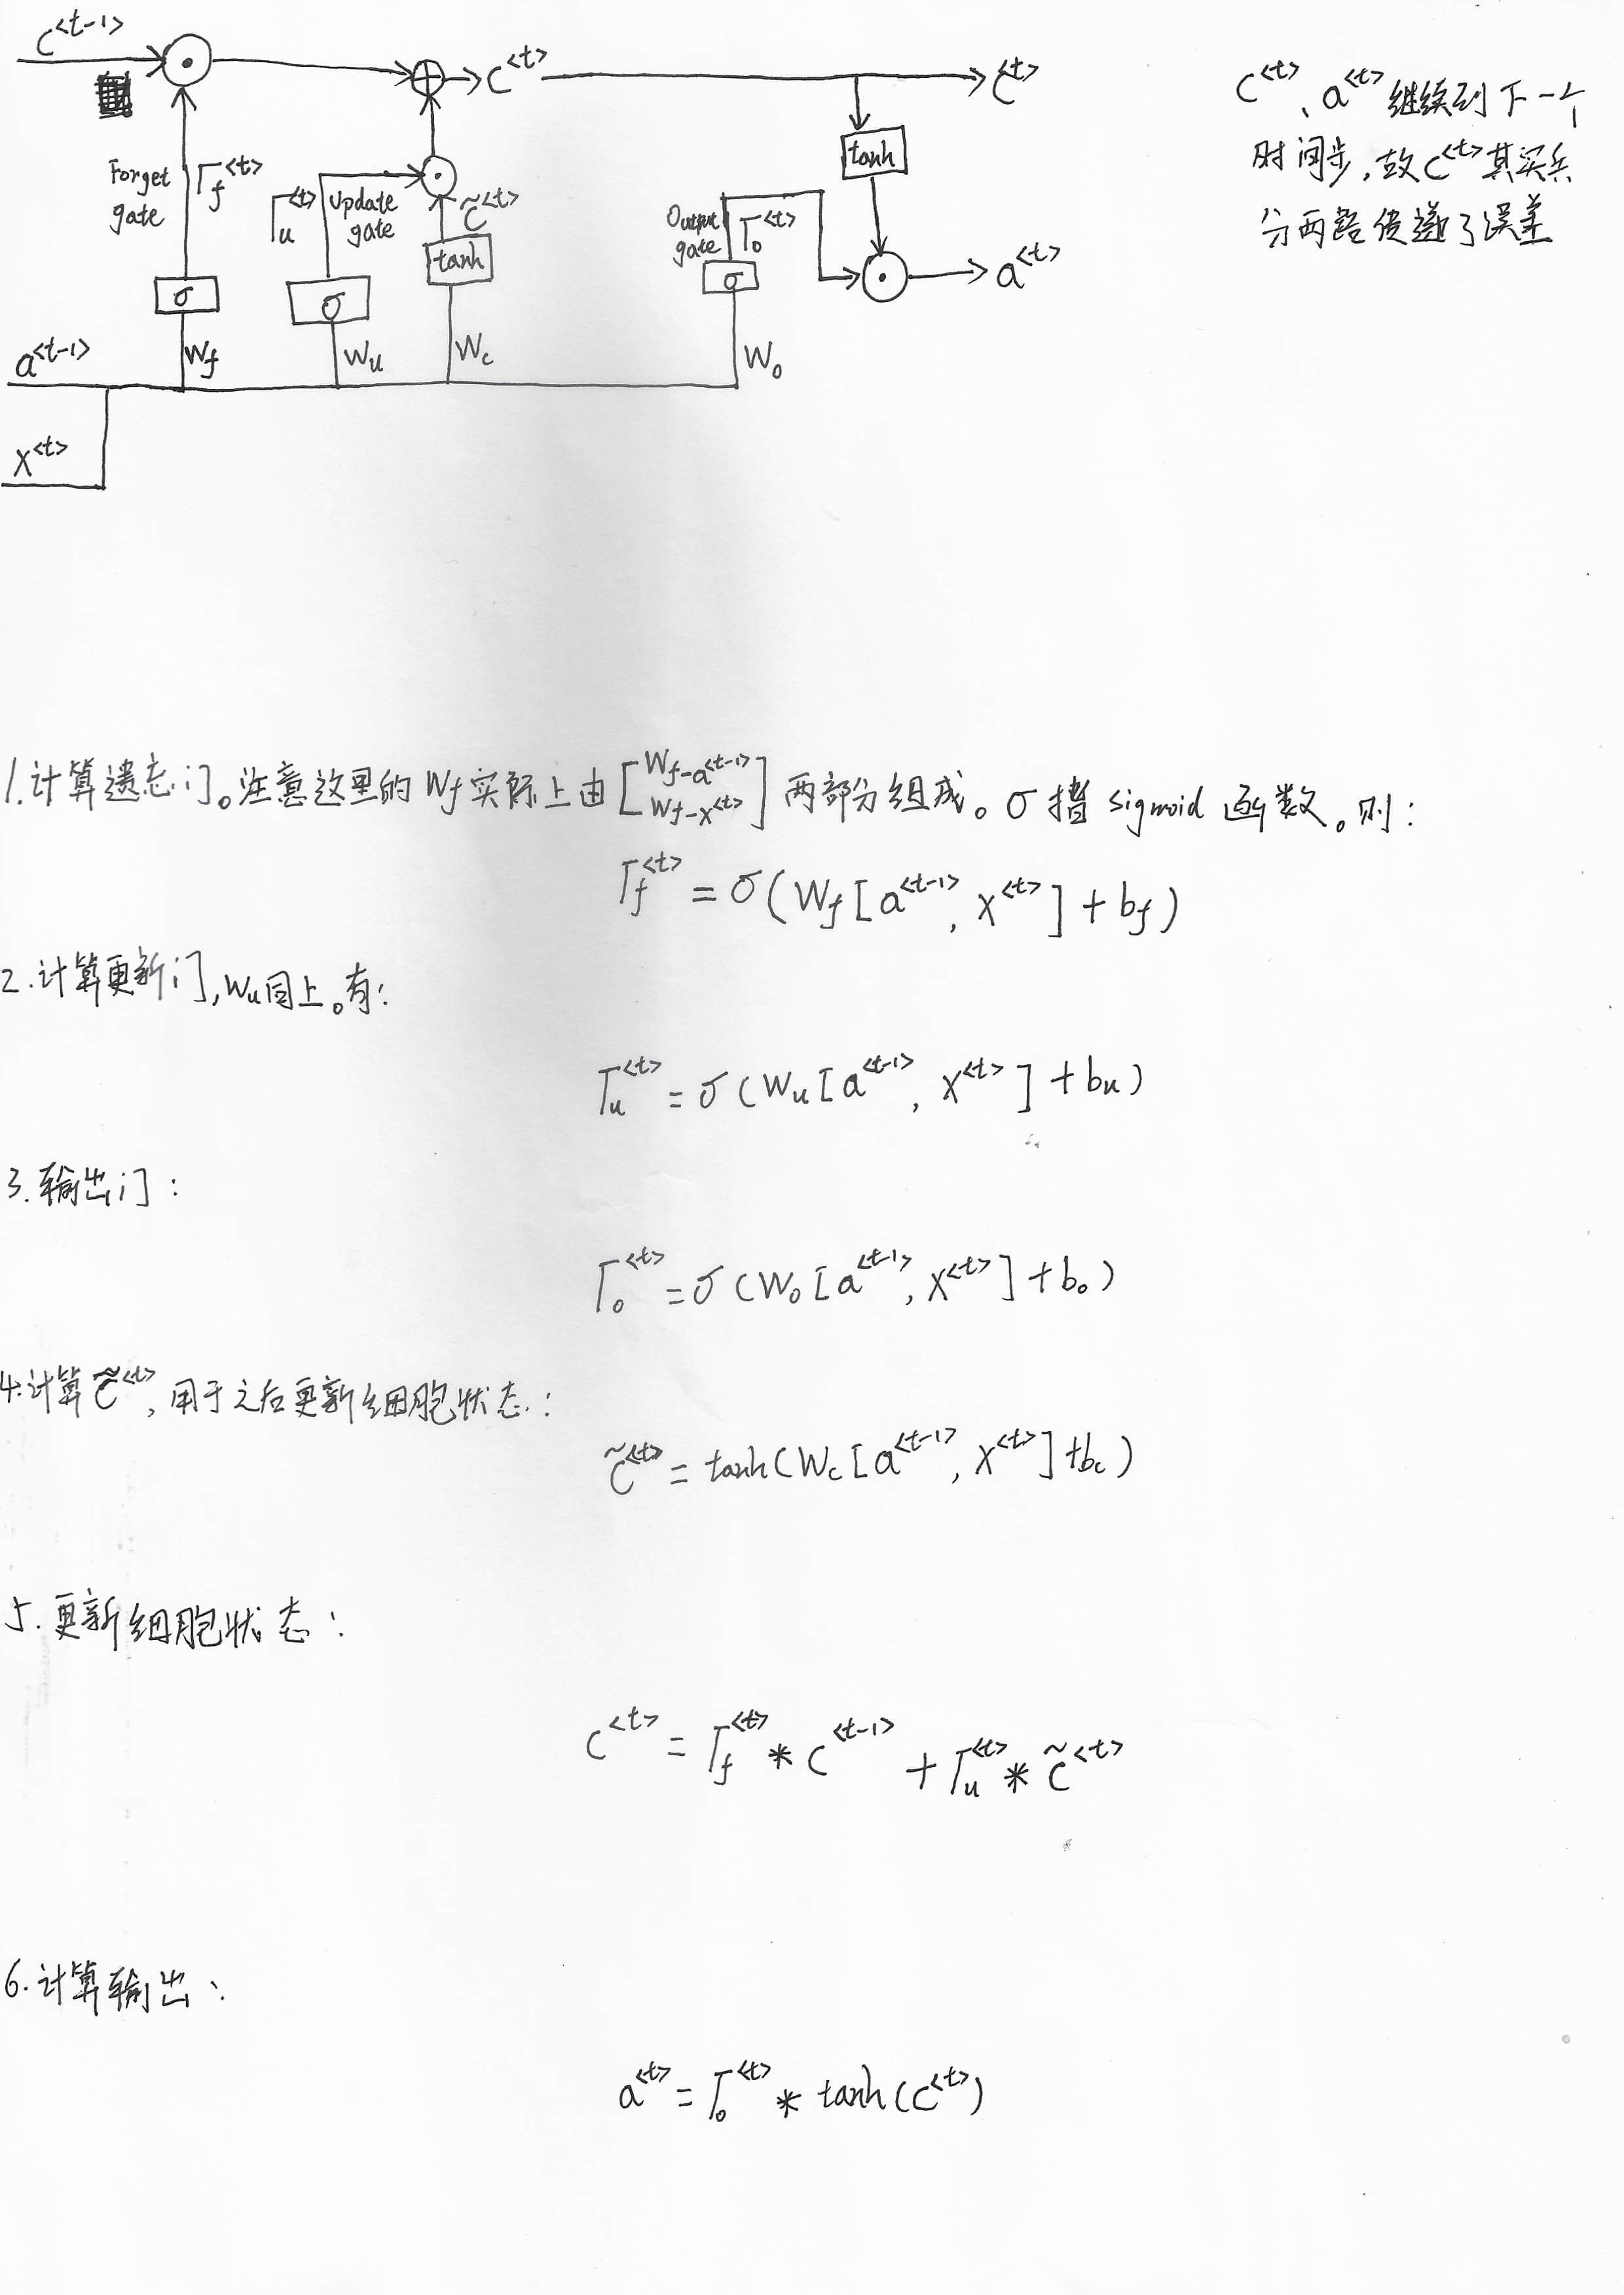 C^{<t-1>}
C^{<t>}
C^{<t>}
Forget gate
Γ_f^{<t>}
Γ_u^{<t>}
Update gate
C̃^{<t>}
tanh
Output gate
Γ_o^{<t>}
tanh
σ
σ
σ
a^{<t>}
a^{<t-1>}
W_f
W_u
W_c
W_o
X^{<t>}
C^{<t>}、a^{<t>}继续到下一个
时间步,故C^{<t>}其实兵
分两路传递了误差
1.计算遗忘门。注意这里的W_f实际上由[W_{f-a^{<t-1>}} W_{f-x^{<t>}}]两部分组成。σ指sigmoid函数。则:
Γ_f^{<t>} = σ(W_f[a^{<t-1>}, X^{<t>}] + b_f)
2.计算更新门,W_u同上。有:
Γ_u^{<t>} = σ(W_u[a^{<t-1>}, X^{<t>}] + b_u)
3.输出门:
Γ_o^{<t>} = σ(W_o[a^{<t-1>}, X^{<t>}] + b_o)
4.计算C̃^{<t>},用于之后更新细胞状态:
C̃^{<t>} = tanh(W_c[a^{<t-1>}, X^{<t>}] + b_c)
5.更新细胞状态:
C^{<t>} = Γ_f^{<t>} * C^{<t-1>} + Γ_u^{<t>} * C̃^{<t>}
6.计算输出:
a^{<t>} = Γ_o^{<t>} * tanh(C^{<t>})